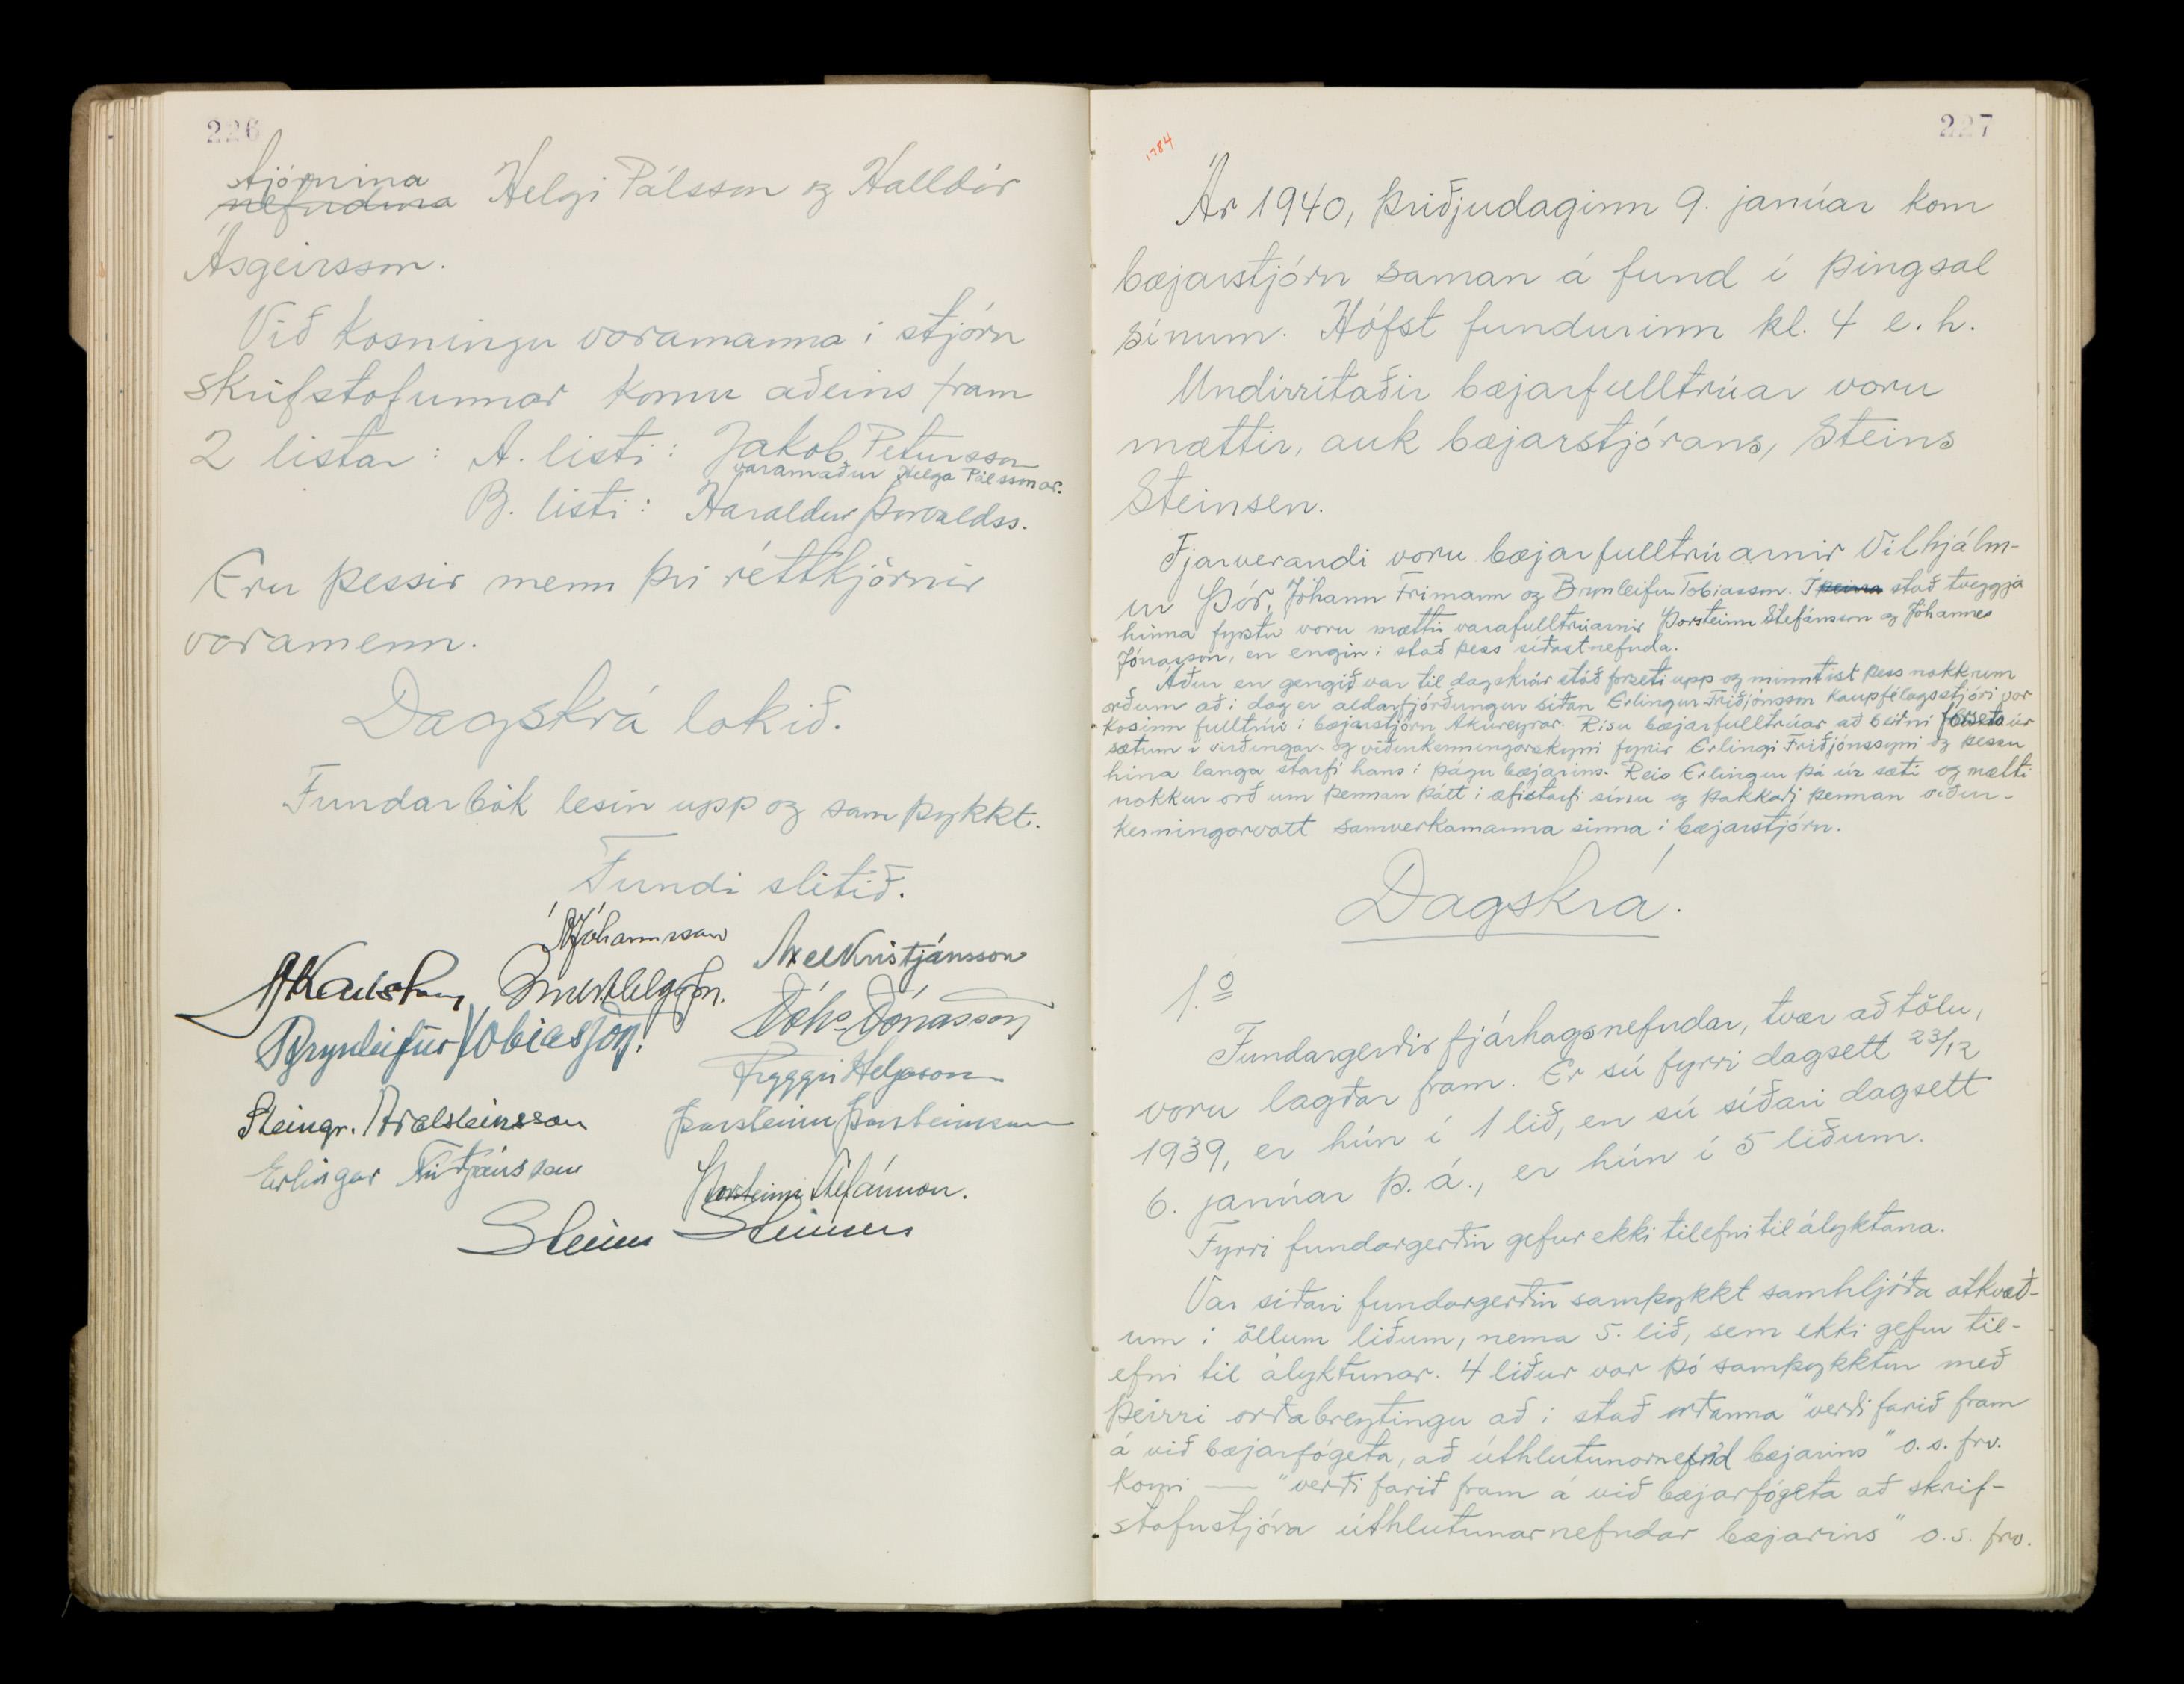 226
stjórnina
nefndina Helgi Pálsson og Halldór
Ásgeirsson.
Við kosningu varamanna í stjórn
skrifstofunnar komu aðeins fram
2 listar: A. listi: Jakob Pétursson
varamaður Helga Pálssonar.
B. listi: Haraldur Þorvaldss.
Eru þessir menn því réttkjörnir
varamenn.
Dagskrá lokið.
Fundarbók lesin upp og samþykkt.
Fundi slitið.
Á Jóhannsson
Axel Kristjánsson
Brynleifur Tobiasson.
Jóhs Jónasson
Tryggvi Helgason
Steingr. Aðalsteinsson
Þorsteinn Þorsteinsson
Erlingur Friðjónsson
Þorsteinn Stefánsson.
Steinn Steinsen
227
1784
Ár 1940, þriðjudaginn 9. janúar kom
bæjarstjórn saman á fund í þingsal
sínum. Hófst fundurinn kl. 4 e. h.
Undirritaðir bæjarfulltrúar voru
mættir, auk bæjarstjórans, Steins
Steinsen.
Fjarverandi voru bæjarfulltrúarnir Vilhjálm-
ur Þór, Jóhann Frímann og Brynleifur Tobiasson. Í þeirra stað tveggja
hinna fyrstu voru mættir varafulltrúarnir Þorsteinn Stefánsson og Jóhannes
Jónasson, en engin í stað þess síðastnefnda.
Áður en gengið var til dagskrár stóð forseti upp og minntist þess nokkrum
orðum að í dag er aldarfjórðungur síðan Erlingur Friðjónsson kaupfélagsstjóri var
kosinn fulltrúi í bæjarstjórn Akureyrar. Risu bæjarfulltrúar að beiðni forseta úr
sætum í virðingar- og viðurkenningarskyni fyrir Erlingi Friðjónssyni og þessu
hina langa starfi hans í þágu bæjarins. Reis Erlingur þá úr sæti og mælti
nokkur orð um þennan þátt í æfistarfi sínu og þakkaði þennan viður-
kenningarvott samverkamanna sinna í bæjarstjórn.
Dagskrá.
1.o
Fundargerðir fjárhagsnefndar, tvær að tölu,
voru lagðar fram. Er sú fyrri dagsett 23/12
1939, er hún í 1 lið, en sú síðari dagsett
6. janúar þ. á., er hún í 5 liðum.
Fyrri fundargerðin gefur ekki tilefni til ályktana.
Var síðari fundargerðin samþykkt samhljóða atkvæð-
um í öllum liðum, nema 5. lið, sem ekki gefur til-
efni til ályktunar. 4 liður var þó samþykktur með
þeirri orðabreytingu að í stað orðanna "verði farið fram
á við bæjarfógeta, að úthlutunarnefnd bæjarins" o. s. frv.
komi — "verði farið fram á við bæjarfógeta að skrif-
stofustjóra úthlutunarnefndar bæjarins" o. s. frv.